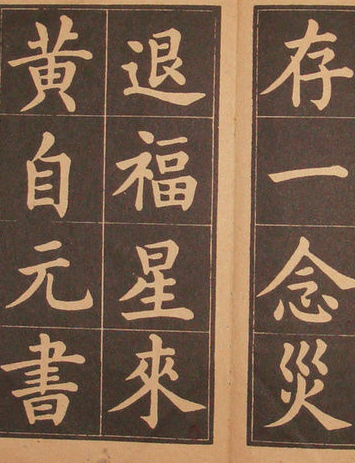 存一念災
退福星來
黃自元書